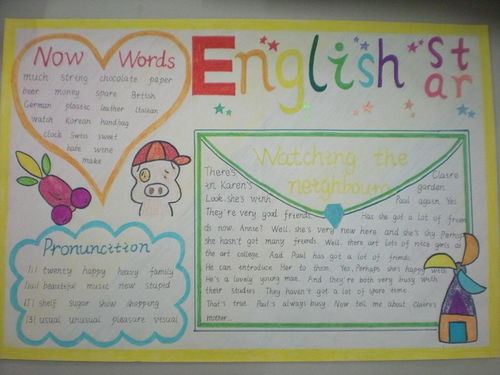 English Star
Now Words
much string chocolate paper
beer money spare British
German plastic leather Italian
watch Korean handbag
clock Swiss sweet
hate wine
make
Pronunction
twenty happy heavy family
beautiful music new stupid
/ʃ/ shelf sugar show shopping
/ʒ/ usual unusual pleasure visual
Watching the
neighbours
There's Claire
in Karen's garden.
Look. she's with Paul again. Yes.
They're very good friends. Has she got a lot of frien
ds now. Annie? Well, she's very new here and she's shy. Perhaps
she hasn't got many friends. Well, there are lots of nice girls at
the art college. And Paul has got a lot of friends.
He can introduce Her to them. Yes, Perhaps she's happy with
He's a lovely young man. And they're both very busy with
their studies. They haven't got a lot of spare time.
That's true. Paul's always busy. Now tell me about Claire's
mother...